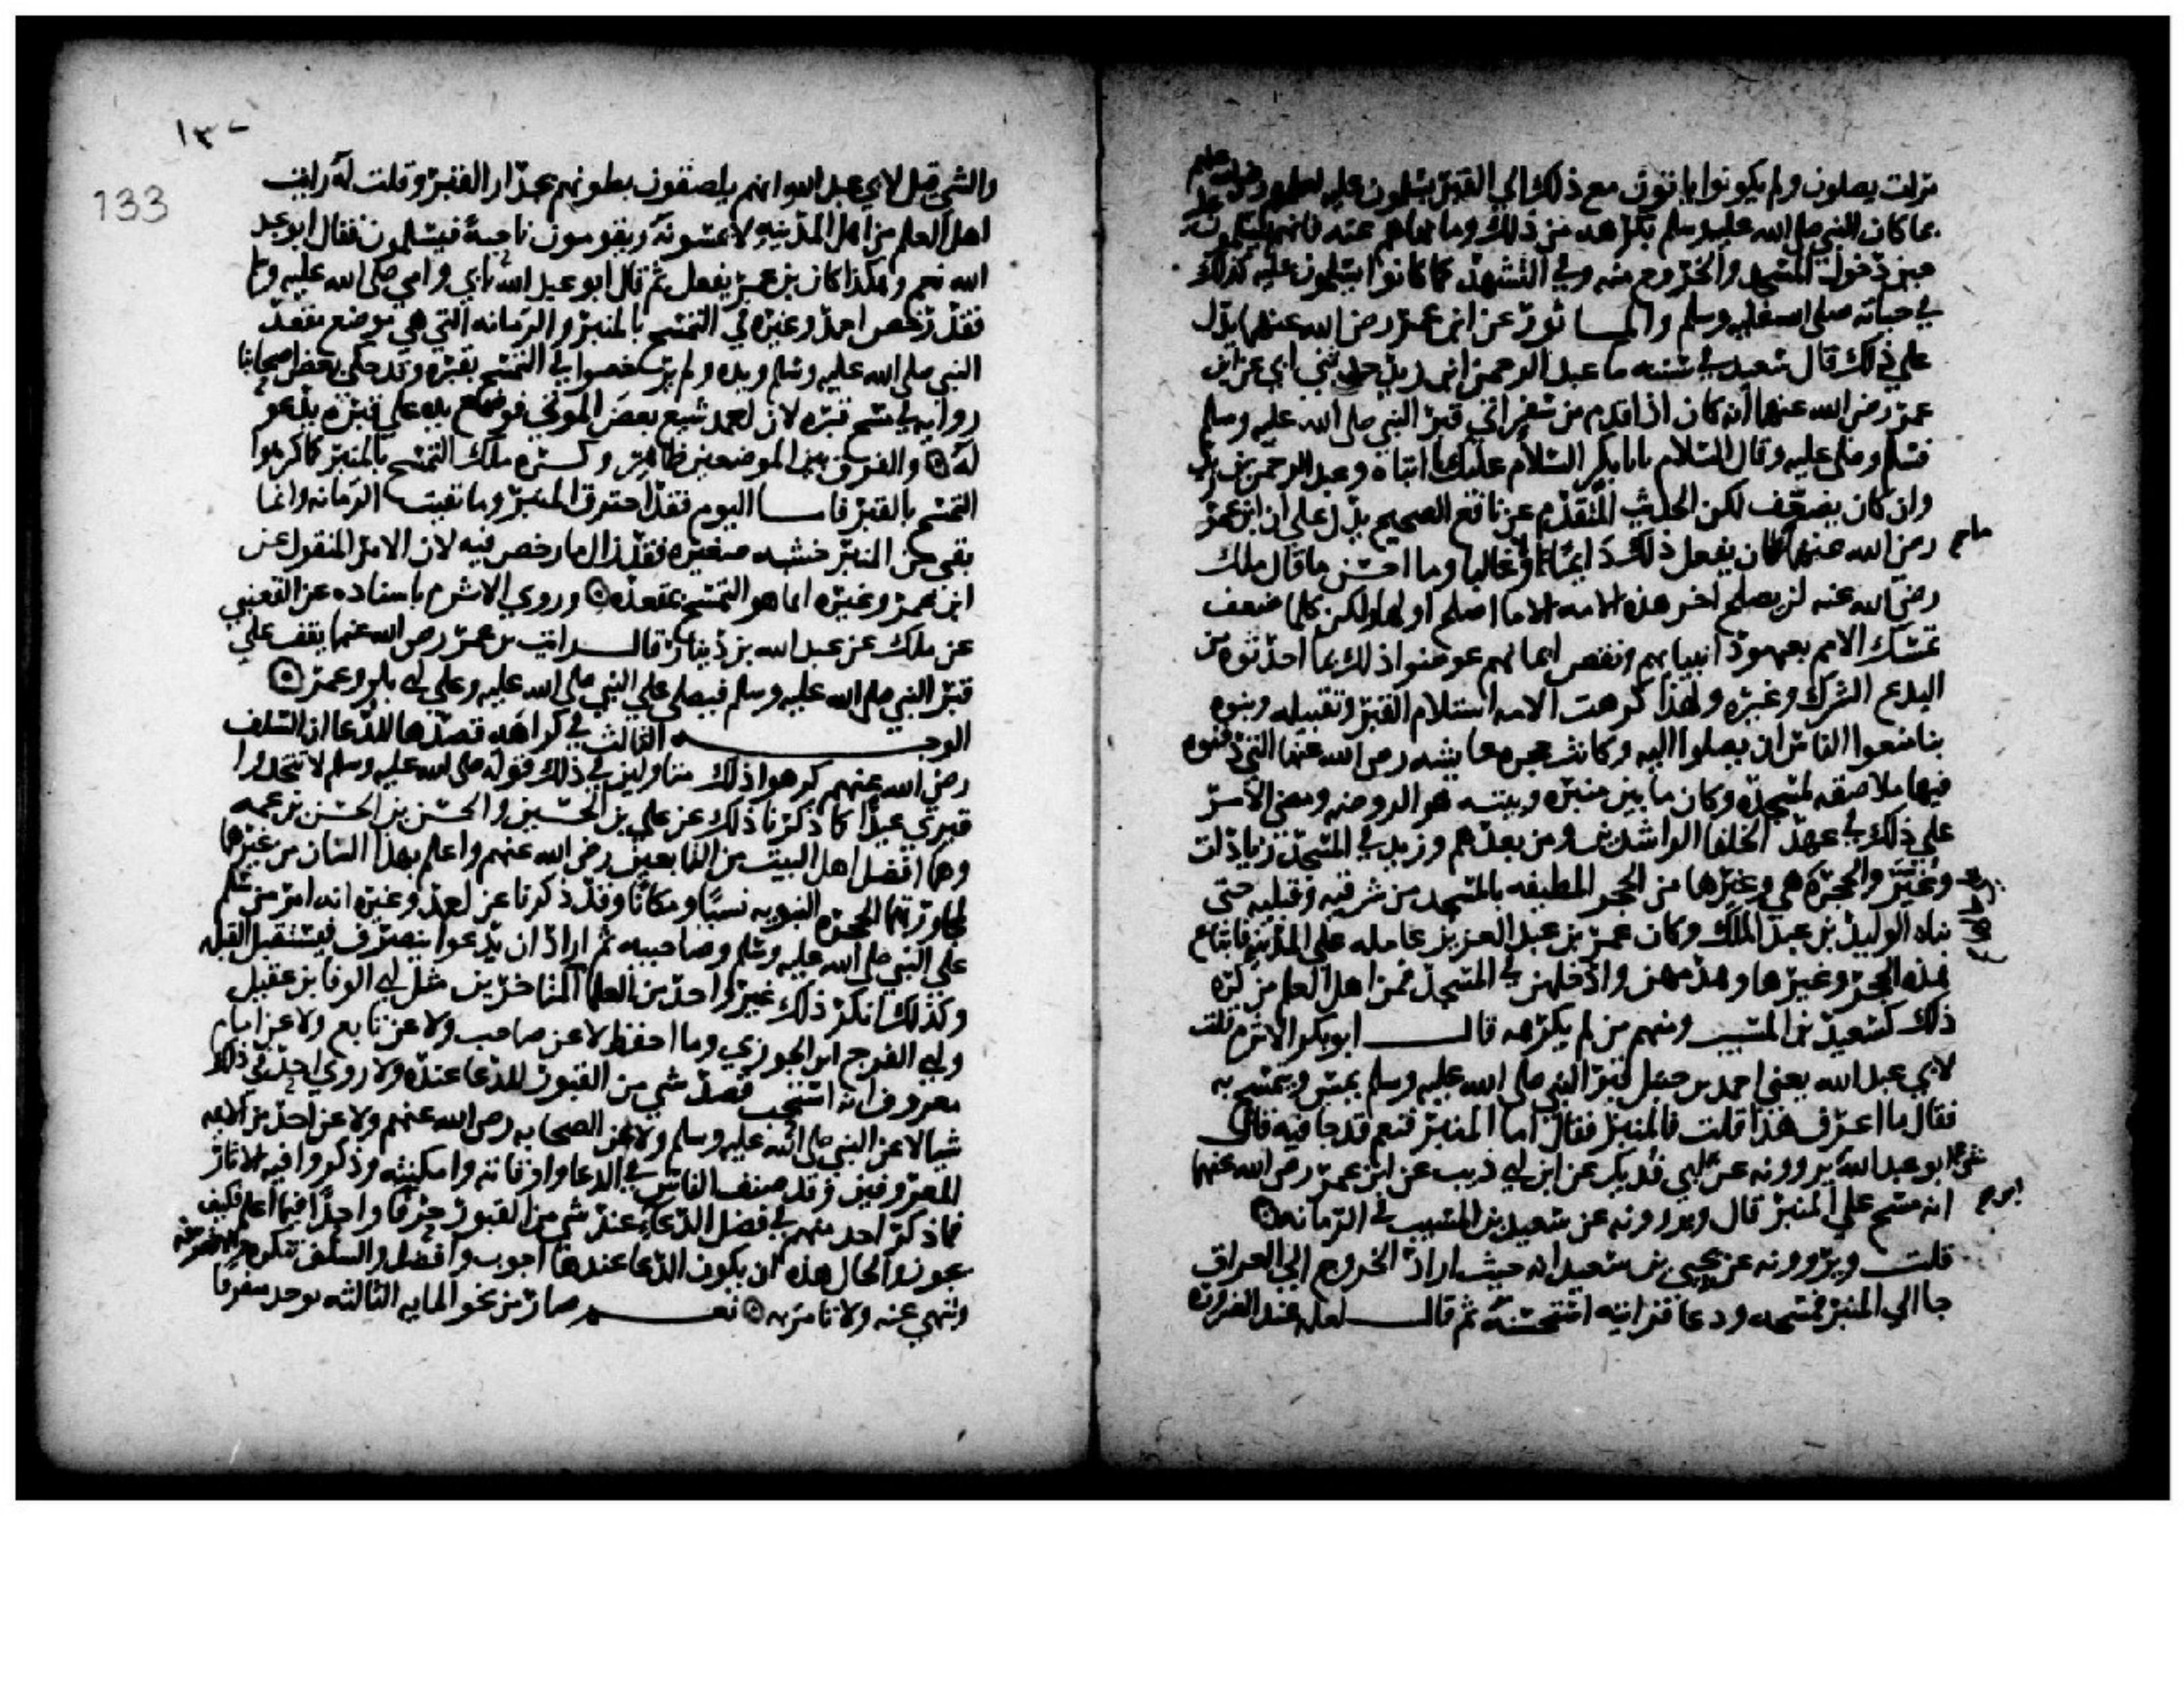 مرات يصلون ولم يكونوا ياتون مع ذلك الى القبر يسلمون عليه لعلمهم رضي الله عنهم
بما كان النبي صلى الله عليه وسلم يكرهه من ذلك وما نهاهم عنه فانهم يسلمون عليه
حين دخول المسجد والخروج منه وفي التشهد كما كانوا يسلمون عليه كذلك
في حياته صلى الله عليه وسلم والماثور عن ابن عمر رضي الله عنهما يدل
على ذلك قال سعيد في سننه ما عبد الرحمن ابن زيد حدثني ابي عن ابن
عمر رضي الله عنهما انه كان اذا قدم من سفر اتى قبر النبي صلى الله عليه وسلم
فسلم وصلى عليه وقال السلام يابابكر السلام عليك يا ابتاه وعبد الرحمن بن زيد
وان كان يضعف لكن الحديث المتقدم عن نافع الصحيح يدل على ان ابن عمر
رضي الله عنهما ما كان يفعل ذلك دايما ولا غالبا وما احسن ما قال ملك
رضي الله عنه لن يصلح اخر هذه الامه الا ما اصلح اولها ولكن كلما ضعف
تمسك الامم بعهود انبيايهم ونقص ايمانهم عوضوا ذلك بما احدثوه من
البدع الشرك وغيره ولهذا كرهت الامه استلام القبر وتقبيله وبنوه
بنا منعوا الناس ان يصلوا اليه وكانت حجره عايشه رضي الله عنها التي دفنوه
فيها ملاصقه لمسجده وكان ما بين منبره وبيته هو الروضه ومضى الامر
على ذلك في عهد الخلفا الراشدين ومن بعدهم وزيد في المسجد زيادات
وغير والحجره هي وغيرها من الحجر المطيفه بالمسجد من شرقيه وقبليه حتى
بناه الوليد بن عبد الملك وكان عمر بن عبد العزيز عامله على المدينه فابتاع
هذه الحجر وغيرها وهدمهن وادخلهن في المسجد فمن اهل العلم من كره
ذلك كسعيد بن المسيب ومنهم من لم يكرهه قال ابو بكر الاثرم قلت
لابي عبد الله يعني احمد بن حنبل قبر النبي صلى الله عليه وسلم يمس ويتمسح به
فقال ما اعرف هذا قلت فالمنبر فقال اما المنبر فنعم قد جا فيه قال
ابو عبد الله يروونه عن ابن ابي فديك عن ابن ابي ذيب عن ابن عمر رضي الله عنهما
انه مسح على المنبر قال ويروونه عن سعيد بن المسيب في الرمانه
قلت ويروونه عن يحيى بن سعيد انه حيث اراد الخروج الى العراق
جا الى المنبر فمسحه ودعا فرايته استحسنه ثم قال لعله عند الضروره
١٣٠
133
والشي قيل لابي عبد الله انهم يلصقون بطونهم بجدار القبر وقلت له رايت
اهل العلم من اهل المدينه لا يمسونه ويقومون ناحية فيسلمون فقال ابو عبد
الله نعم وهكذا كان بن عمر يفعل ثم قال ابو عبد الله بابي وامي صلى الله عليه وسلم
فقد رخص احمد وغيره في التمسح بالمنبر والرمانه التي هي موضع مقعد
النبي صلى الله عليه وسلم ويده ولم يرخصوا في التمسح بقبره وقد حكى بعض اصحابنا
روايه في مسح قبره لان احمد شيع بعض الموتى فوضع يده على قبره يدعو
له والفرق بين الموضعين ظاهر وكره ملك التمسح بالمنبر كما كرهوا
التمسح بالقبر فاما اليوم فقد احترق المنبر وما بقيت الرمانه وانما
بقى من المنبر خشبه صغيره فقد زال ما رخص فيه لان الامر المنقول عن
ابن عمر وغيره انما هو التمسح بمقعده وروي الاثرم باسناده عن القعنبي
عن ملك عن عبد الله بن دينار قال رايت بن عمر رضي الله عنهما يقف على
قبر النبي صلى الله عليه وسلم فيصلي على النبي صلى الله عليه وعلى ابي بكر وعمر
الوجه الثالث في كراهه قصدها للدعا ان السلف
رضي الله عنهم كرهوا ذلك متاولين في ذلك قوله صلى الله عليه وسلم لا تتخذوا
قبري عيدا كما ذكرنا ذلك عن علي بن الحسين والحسن بن الحسن بن عمه
وهما افضل اهل البيت من التابعين رضي الله عنهم واعلم بهذا الشان من غيرها
لمجاورتهما الحجره النبويه نسبا ومكانا وقد ذكرنا عن احمد وغيره انه امر من سلم
على النبي صلى الله عليه وسلم وصاحبيه ثم اراد ان يدعوا ينصرف فيستقبل القبله
وكذلك انكر ذلك غير واحد من العلما المتاخرين مثل ابي الوفا بن عقيل
وابي الفرج ابن الجوزي وما احفظ لا عن صاحب ولا عن تابع ولا عن امام
معروف انه استحب قصد شي من القبور للدعا عنده ولا روي احد في ذلك
شيا لا عن النبي صلى الله عليه وسلم ولا عن الصحابه رضي الله عنهم ولا عن احد من الايمه
المعروفين وقد صنف الناس في الدعا واوقاته وامكنته وذكروا فيه الاثار
فما ذكر احد منهم في فضل الدعا عند شي من القبور حرفا واحدا فيما اعلم فكيف
يجوز والحال هذه ان يكون الدعا عندها اجوب وافضل والسلف تنكره ولا تعرفه
وتنهي عنه ولا تامر به نعم صار من نحو المايه الثالثه يوجد متفرقا